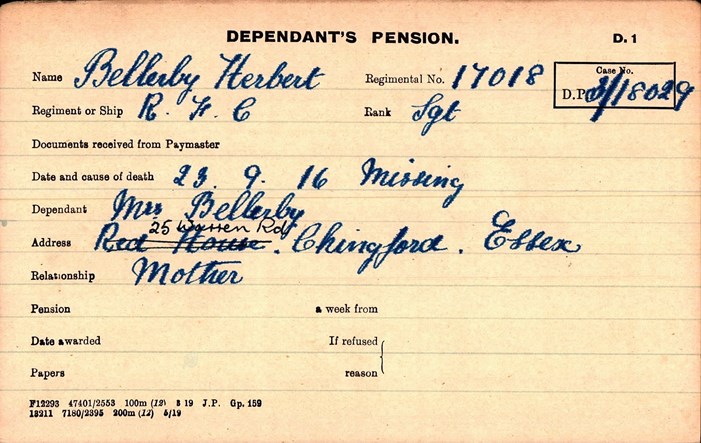 DEPENDANT'S PENSION. D. 1
Name Bellerby Herbert Regimental No. 17018 Case No.
Regiment or Ship R. F. C Rank Sgt D.P. 3/18029
Documents received from Paymaster
Date and cause of death 23. 9. 16 Missing
Dependant Mrs Bellerby
25 Warren Rd
Address Red House. Chingford. Essex
Relationship Mother
Pension a week from
Date awarded If refused
Papers reason
F12293 47401/2553 100m (12) 3 19 J.P. Gp. 159
13211 7180/2395 200m (12) 5/19